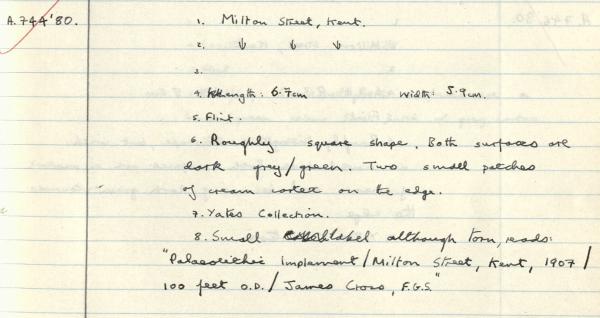 A.744'80.
1. Milton Street, Kent.
2. ↓ ↓ ↓
3.
4. Length: 6.7cm Width: 5.9cm.
5. Flint.
6. Roughly square shape. Both surfaces are
dark grey/green. Two small patches
of cream cortex on the edge.
7. Yates Collection.
8. Small label although torn, reads:
"Palaeolithic Implement/Milton Street, Kent, 1907/
100 feet O.D./James Cross, F.G.S."